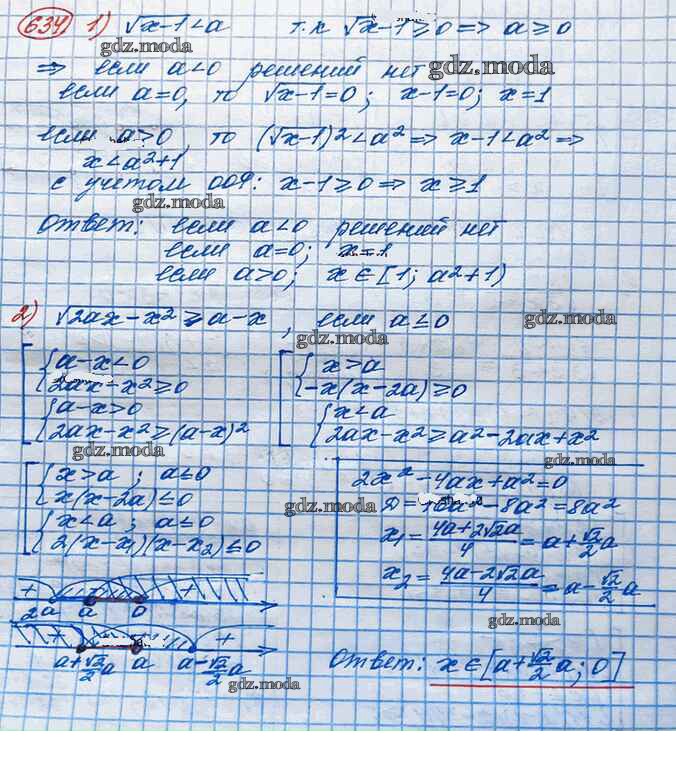 634 1) √x-1 < a т.к √x-1 ≥ 0 => a ≥ 0
gdz.moda
=> если a<0 решений нет gdz.moda
если a=0, то √x-1=0; x-1=0; x=1
если a>0, то (√x-1)² < a² => x-1 < a² =>
x < a²+1
с учетом ОДЗ: x-1 ≥ 0 => x ≥ 1
gdz.moda
Ответ: если a<0 решений нет
gdz.moda
если a=0; x=1
если a>0; x ∈ [1; a²+1)
2) √2ax-x² ≥ a-x, если a ≤ 0 gdz.moda
gdz.moda
a-x<0
2ax-x² ≥ 0
a-x>0
2ax-x² ≥ (a-x)²
x>a
-x(x-2a) ≥ 0
x<a
2ax-x² ≥ a²-2ax+x²
gdz.moda
gdz.moda
x>a; a≤0
x(x-2a) ≤ 0
x<a; a≤0
2(x-x₁)(x-x₂) ≤ 0
2x²-4ax+a²=0
D=16a²-8a²=8a²
gdz.moda
x₁ = 4a+2√2a / 4 = a+√2/2 a
x₂ = 4a-2√2a / 4 = a-√2/2 a
+ +
2a a 0
gdz.moda
+
a+√2/2 a a a-√2/2 a
gdz.moda
Ответ: x ∈ [a+√2/2 a; 0]